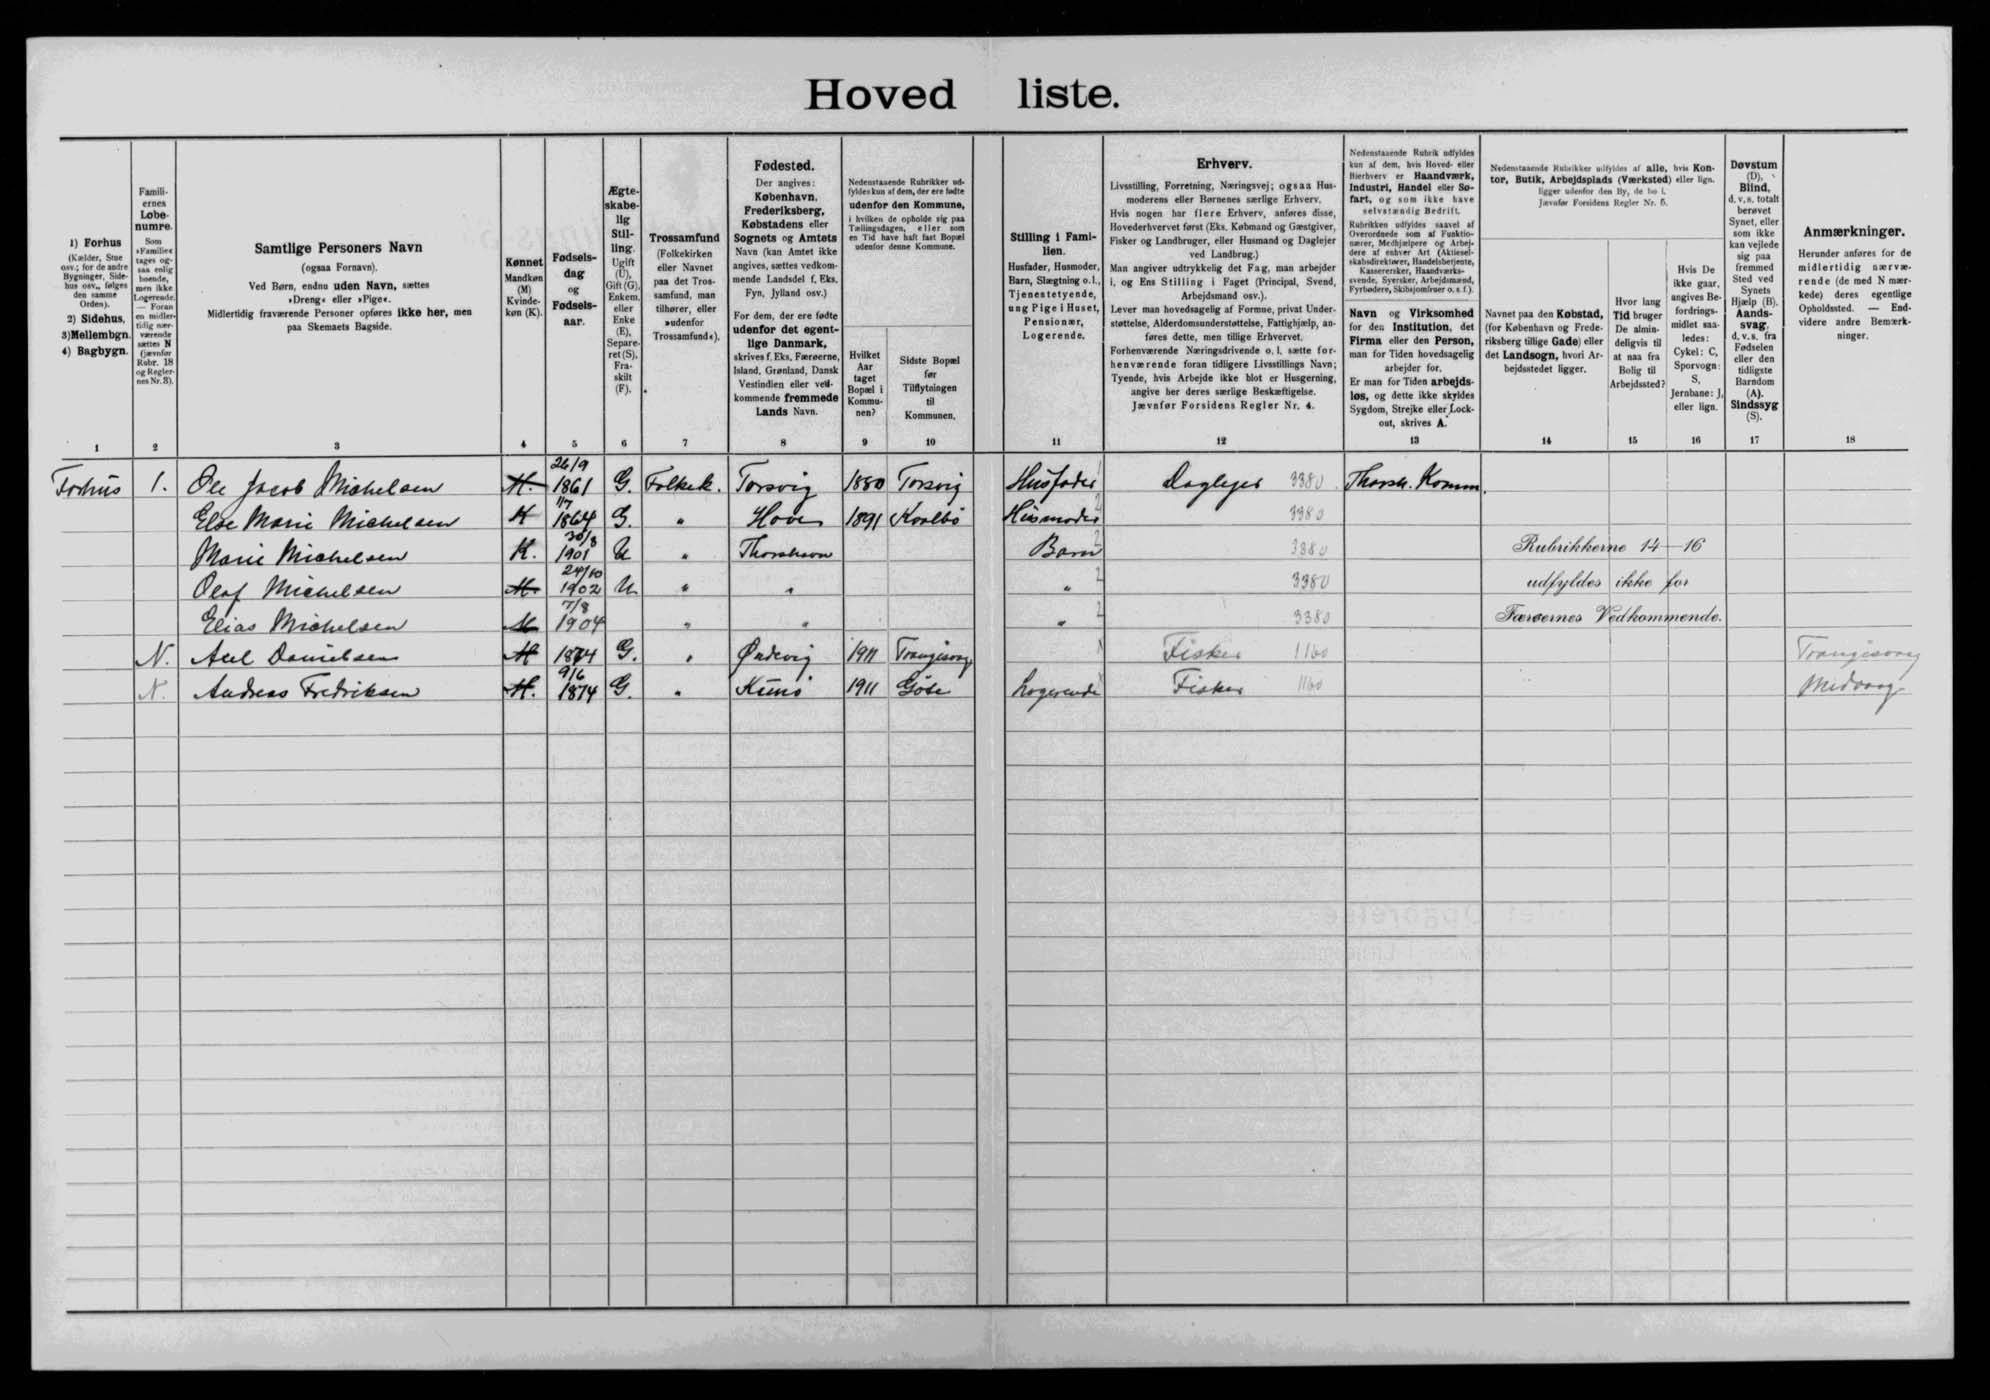 Hoved liste.
1) Forhus
(Kælder, Stue
osv.; for de andre
Bygninger, Side-
hus osv., følges
den samme
Orden).
2) Sidehus,
3) Mellembgn.
4) Bagbygn.
Famili-
ernes
Løbe-
numre.
Som
»Familie«
tages og-
saa enlig
boende,
men ikke
Logerende.
— Foran
en midler-
tidig nær-
værende
sættes N
(jævnfør
Rubr. 18
og Regler-
nes Nr. 3).
Samtlige Personers Navn
(ogsaa Fornavn).
Ved Børn, endnu uden Navn, sættes
»Dreng« eller »Pige«.
Midlertidig fraværende Personer opføres ikke her, men
paa Skemaets Bagside.
Kønnet
Mandkøn
(M)
Kvinde-
køn (K).
Fødsels-
dag
og
Fødsels-
aar.
Ægte-
skabe-
lig
Stil-
ling.
Ugift
(U),
Gift (G),
Enkem.
eller
Enke
(E),
Separe-
ret (S),
Fra-
skilt
(F).
Trossamfund
(Folkekirken
eller Navnet
paa det Tros-
samfund, man
tilhører, eller
»udenfor
Trossamfund«).
Fødested.
Der angives:
København,
Frederiksberg,
Købstadens eller
Sognets og Amtets
Navn (kan Amtet ikke
angives, sættes vedkom-
mende Landsdel f. Eks.
Fyn, Jylland osv.)
For dem, der ere fødte
udenfor det egent-
lige Danmark,
skrives f. Eks. Færøerne,
Island, Grønland, Dansk
Vestindien eller ved-
kommende fremmede
Lands Navn.
Nedenstaaende Rubrikker ud-
fyldes kun af dem, der ere fødte
udenfor den Kommune,
i hvilken de opholde sig paa
Tællingsdagen, eller som
en Tid have haft fast Bopæl
udenfor denne Kommune.
Hvilket
Aar
taget
Bopæl i
Kommu-
nen?
Sidste Bopæl
før
Tilflytningen
til
Kommunen.
Stilling i Fami-
lien.
Husfader, Husmoder,
Barn, Slægtning o.l.,
Tjenestetyende,
ung Pige i Huset,
Pensionær,
Logerende.
Erhverv.
Livsstilling, Forretning, Næringsvej; ogsaa Hus-
moderens eller Børnenes særlige Erhverv.
Hvis nogen har flere Erhverv, anføres disse,
Hovederhvervet først (Eks. Købmand og Gæstgiver,
Fisker og Landbruger, eller Husmand og Daglejer
ved Landbrug.)
Man angiver udtrykkelig det Fag, man arbejder
i, og Ens Stilling i Faget (Principal, Svend,
Arbejdsmand osv.).
Lever man hovedsagelig af Formue, privat Under-
støttelse, Alderdomsunderstøttelse, Fattighjælp, an-
føres dette, men tillige Erhvervet.
Forhenværende Næringsdrivende o. l. sætte for-
henværende foran tidligere Livsstillings Navn;
Tyende, hvis Arbejde ikke blot er Husgerning,
angive her deres særlige Beskæftigelse.
Jævnfør Forsidens Regler Nr. 4.
Nedenstaaende Rubrik udfyldes
kun af dem, hvis Hoved- eller
Bierhverv er Haandværk,
Industri, Handel eller Sø-
fart, og som ikke have
selvstændig Bedrift.
Rubrikken udfyldes saavel af
Overordnede som af Funktio-
nærer, Medhjælpere og Arbej-
dere af enhver Art (Aktiesel-
skabsdirektører, Handelsbetjente,
Kassererrsker, Haandværks-
svende, Syersker, Arbejdsmænd,
Fyrbødere, Skibsjomfruer o. s. f.).
Navn og Virksomhed
for den Institution, det
Firma eller den Person,
man for Tiden hovedsagelig
arbejder for.
Er man for Tiden arbejds-
løs, og dette ikke skyldes
Sygdom, Strejke eller Lock-
out, skrives A.
Nedenstaaende Rubrikker udfyldes af alle, hvis Kon-
tor, Butik, Arbejdsplads (Værksted) eller lign.
ligger udenfor den By, de bo i.
Jævnfør Forsidens Regler Nr. 5.
Navnet paa den Købstad,
(for København og Frede-
riksberg tillige Gade) eller
det Landsogn, hvori Ar-
bejdsstedet ligger.
Hvor lang
Tid bruger
De almin-
deligvis til
at naa fra
Bolig til
Arbejdssted?
Hvis De
ikke gaar,
angives Be-
fordrings-
midlet saa-
ledes:
Cykel: C,
Sporvogn:
S,
Jernbane: J,
eller lign.
Døvstum
(D),
Blind,
d. v. s. totalt
berøvet
Synet, eller
som ikke
kan vejlede
sig paa
fremmed
Sted ved
Synets
Hjælp (B).
Aands-
svag,
d. v. s. fra
Fødselen
eller den
tidligste
Barndom
(A).
Sindssyg
(S).
Anmærkninger.
Herunder anføres for de
midlertidig nærvæ-
rende (de med N mær-
kede) deres egentlige
Opholdssted. — End-
videre andre Bemærk-
ninger.
1 2 3 4 5 6 7 8 9 10 11 12 13 14 15 16 17 18
Forhus 1. Ole Jacob Michelsen M. 26/9 1861 G. Folkek. Torsvig 1880 Torsvig Husfader 1 Daglejer 3380 Thorsh. Komm.
Else Marie Michelsen K 1/7 1864 G. " Hove 1891 Kvalbø Husmoder 2 3380
Marie Michelsen K. 30/8 1901 U " Thorshavn Barn 2 3380 Rubrikkerne 14—16
Olaf Michelsen M. 24/10 1902 U " " " 2 3380 udfyldes ikke for
Elias Michelsen M 7/8 1904 " " " 2 3380 Færøernes Vedkommende.
N. Axel Danielsen M 1874 G. " Øndevig 1911 Trangisvog Fisker 1160 Trangisvaag
N. Andreas Fredriksen M. 9/6 1874 G. " Kunø 1911 Gøte Logerende Fisker 1160 Midvaag